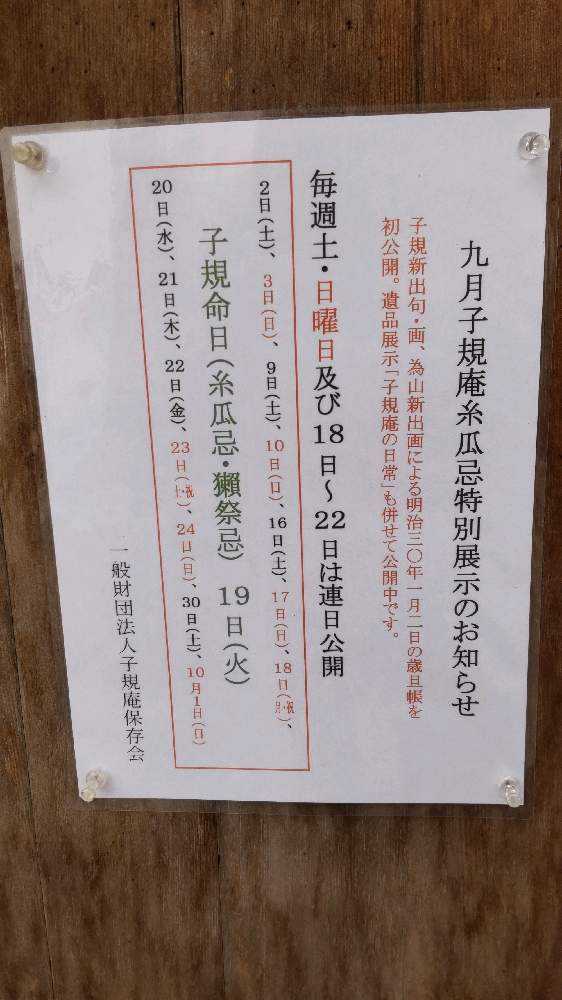 九月子規庵糸瓜忌特別展示のお知らせ
子規新出句・画、為山新出画による明治三〇年一月二日の歳旦帳を
初公開。遺品展示「子規庵の日常」も併せて公開中です。
毎週土・日曜日及び18日～22日は連日公開
2日(土)、3日(日)、9日(土)、10日(日)、16日(土)、17日(日)、18日(月・祝)、
子規命日(糸瓜忌・獺祭忌) 19日(火)
20日(水)、21日(木)、22日(金)、23日(土・祝)、24日(日)、30日(土)、10月1日(日)
一般財団法人子規庵保存会